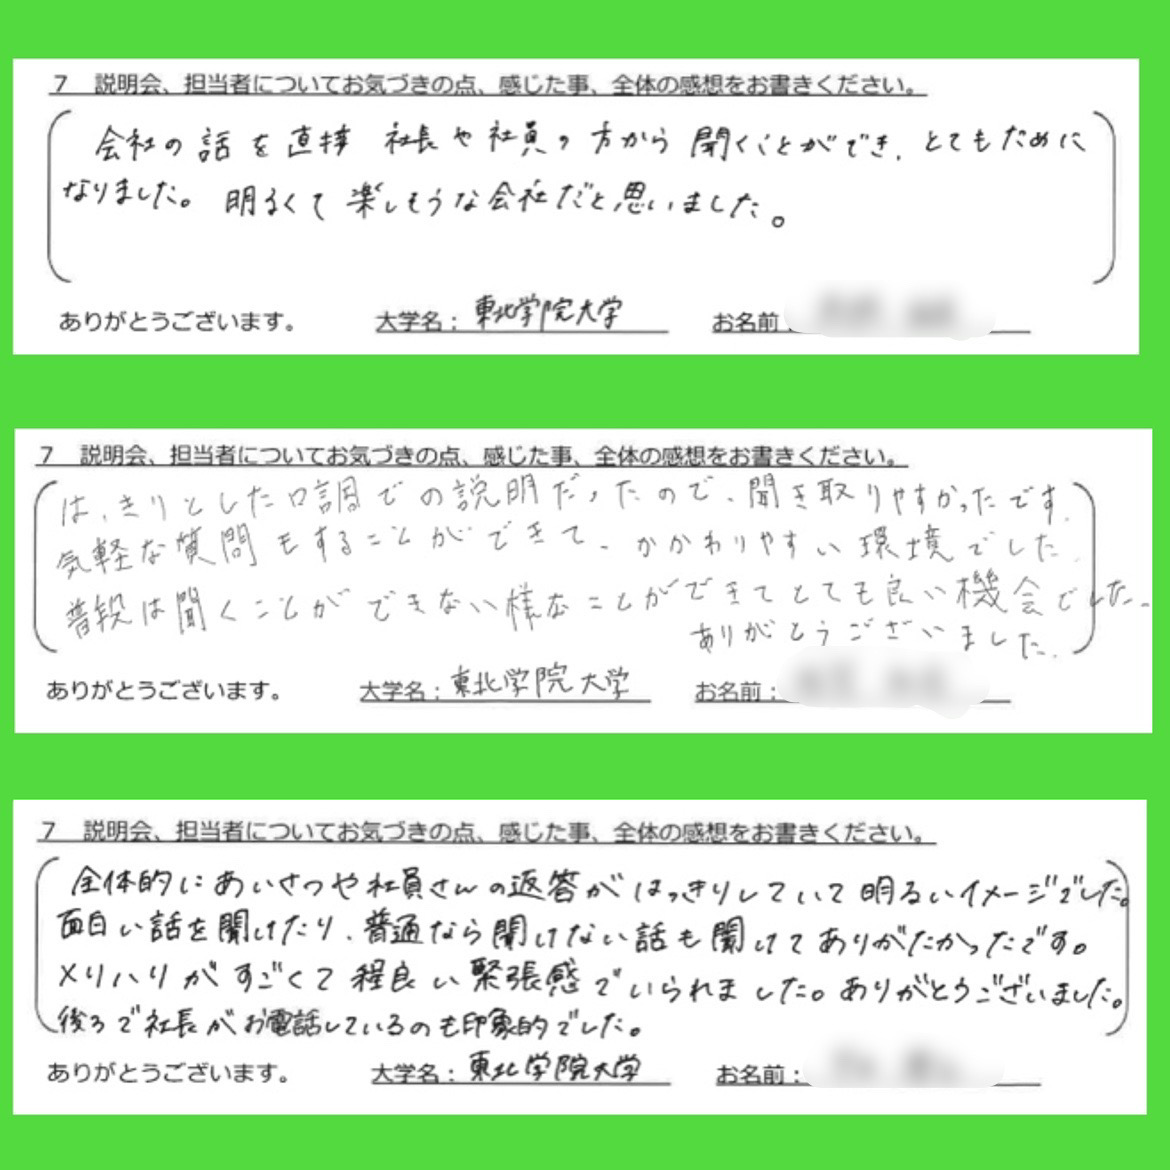 7 説明会、担当者についてお気づきの点、感じた事、全体の感想をお書きください。
会社の話を直接 社長や社員の方から 聞くことができ、とてもために
なりました。明るくて楽しそうな会社だと思いました。
ありがとうございます。 大学名：東北学院大学 お名前：
7 説明会、担当者についてお気づきの点、感じた事、全体の感想をお書きください。
はっきりとした口調での説明だったので、聞き取りやすかったです。
気軽な質問もすることができて、かかわりやすい環境でした。
普段は聞くことができない様なことができてとても良い機会でした。
ありがとうございました。
ありがとうございます。 大学名：東北学院大学 お名前：
7 説明会、担当者についてお気づきの点、感じた事、全体の感想をお書きください。
全体的にあいさつや社員さんの返答がはっきりしていて明るいイメージでした。
面白い話を聞けたり、普通なら聞けない話も聞けてありがたかったです。
メリハリがすごくて程良い緊張感でいられました。ありがとうございました。
後ろで社長がお電話しているのも印象的でした。
ありがとうございます。 大学名：東北学院大学 お名前：